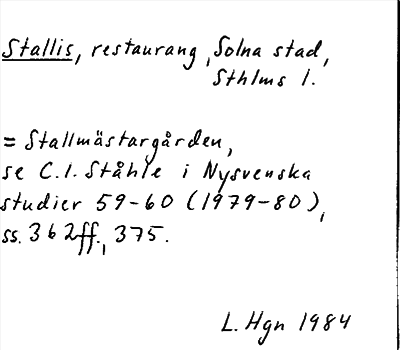 Stallis, restaurang, Solna stad,
Sthlms l.
= Stallmästargården,
se C.I. Ståhle i Nysvenska
studier 59-60 (1979-80),
ss. 362ff., 375.
L. Hgn 1984